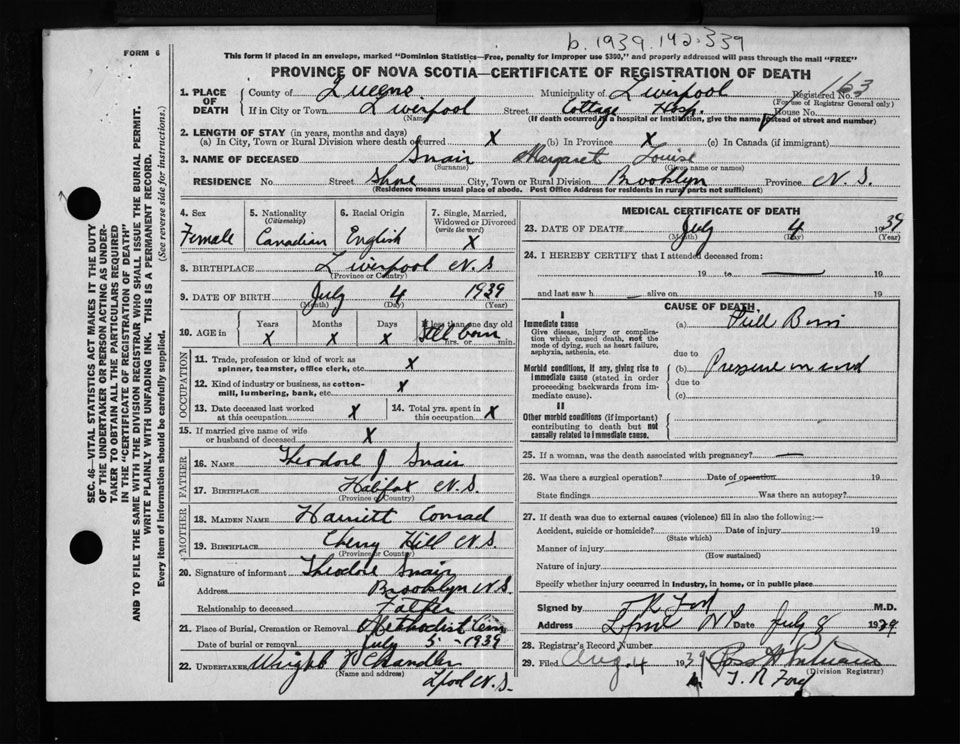 b. 1939. 142. 339
FORM 6
This form if placed in an envelope, marked "Dominion Statistics—Free, penalty for improper use $300," and properly addressed will pass through the mail "FREE"
PROVINCE OF NOVA SCOTIA—CERTIFICATE OF REGISTRATION OF DEATH
1. PLACE OF DEATH
County of Queens Municipality of Liverpool Registered No. 163
(For use of Registrar General only)
If in City or Town Liverpool Street Cottage Hosp. House No.
(Name) (If death occurred in a hospital or institution, give the name instead of street and number)
2. LENGTH OF STAY (in years, months and days)
(a) In City, Town or Rural Division where death occurred X (b) In Province X (c) In Canada (if immigrant)
3. NAME OF DECEASED Snair Margaret Louise
(Surname) (Given name or names)
RESIDENCE No. Street Shore City, Town or Rural Division Brooklyn Province N. S.
(Residence means usual place of abode. Post Office Address for residents in rural parts not sufficient)
4. Sex
Female
5. Nationality
(Citizenship)
Canadian
6. Racial Origin
English
7. Single, Married, Widowed or Divorced
(write the word)
X
8. BIRTHPLACE Liverpool N. S
(Province or Country)
9. DATE OF BIRTH July 4 1939
(Month) (Day) (Year)
10. AGE in
Years Months Days If less than one day old
X X X Still born
hrs. or min.
OCCUPATION
11. Trade, profession or kind of work as spinner, teamster, office clerk, etc. X
12. Kind of industry or business, as cotton-mill, lumbering, bank, etc. X
13. Date deceased last worked at this occupation X
14. Total yrs. spent in this occupation X
15. If married give name of wife or husband of deceased X
FATHER
16. NAME Theodore J Snair
17. BIRTHPLACE Halifax N. S.
(Province or Country)
MOTHER
18. MAIDEN NAME Harriett Conrad
19. BIRTHPLACE Cherry Hill N. S.
(Province or Country)
20. Signature of informant Theodore Snair
Address Brooklyn N. S.
Relationship to deceased Father
21. Place of Burial, Cremation or Removal Methodist Cem
Date of burial or removal July 5 - 1939
22. UNDERTAKER Wright V Chandler
(Name and address)
Lpool N. S.
MEDICAL CERTIFICATE OF DEATH
23. DATE OF DEATH July 4 1939
(Month) (Day) (Year)
24. I HEREBY CERTIFY that I attended deceased from:
19 to 19
and last saw h alive on 19
CAUSE OF DEATH
I
Immediate cause
Give disease, injury or complication which caused death, not the mode of dying, such as heart failure, asphyxia, asthenia, etc.
(a) Still Born
due to
Morbid conditions, if any, giving rise to immediate cause (stated in order proceeding backwards from immediate cause).
(b) Pressure on cord
due to
(c)
II
Other morbid conditions (if important) contributing to death but not causally related to immediate cause.
25. If a woman, was the death associated with pregnancy? —
26. Was there a surgical operation? Date of operation 19
State findings Was there an autopsy?
27. If death was due to external causes (violence) fill in also the following:—
Accident, suicide or homicide? Date of injury 19
(State which)
Manner of injury
(How sustained)
Nature of injury
Specify whether injury occurred in industry, in home, or in public place
Signed by Ford M.D.
Address Date July 8 1939
28. Registrar's Record Number
29. Filed Aug. 4 1939
(Division Registrar)
Ford
SEC. 46—VITAL STATISTICS ACT MAKES IT THE DUTY
OF THE UNDERTAKER OR PERSON ACTING AS UNDER-
TAKER TO OBTAIN ALL THE PARTICULARS REQUIRED
IN THE "CERTIFICATE OF REGISTRATION OF DEATH"
AND TO FILE THE SAME WITH THE DIVISION REGISTRAR WHO SHALL ISSUE THE BURIAL PERMIT.
WRITE PLAINLY WITH UNFADING INK. THIS IS A PERMANENT RECORD.
Every item of information should be carefully supplied. (See reverse side for instructions.)